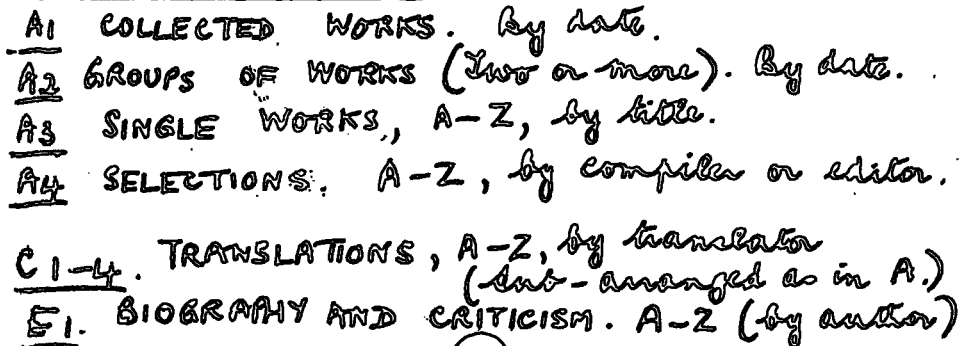 A1 COLLECTED WORKS. By date.
A2 GROUPS OF WORKS (Two or more). By date.
A3 SINGLE WORKS, A-Z, by title.
A4 SELECTIONS. A-Z, by compiler or editor.
C1-4. TRANSLATIONS, A-Z, by translator
(sub-arranged as in A.)
E1. BIOGRAPHY AND CRITICISM. A-Z (by author)